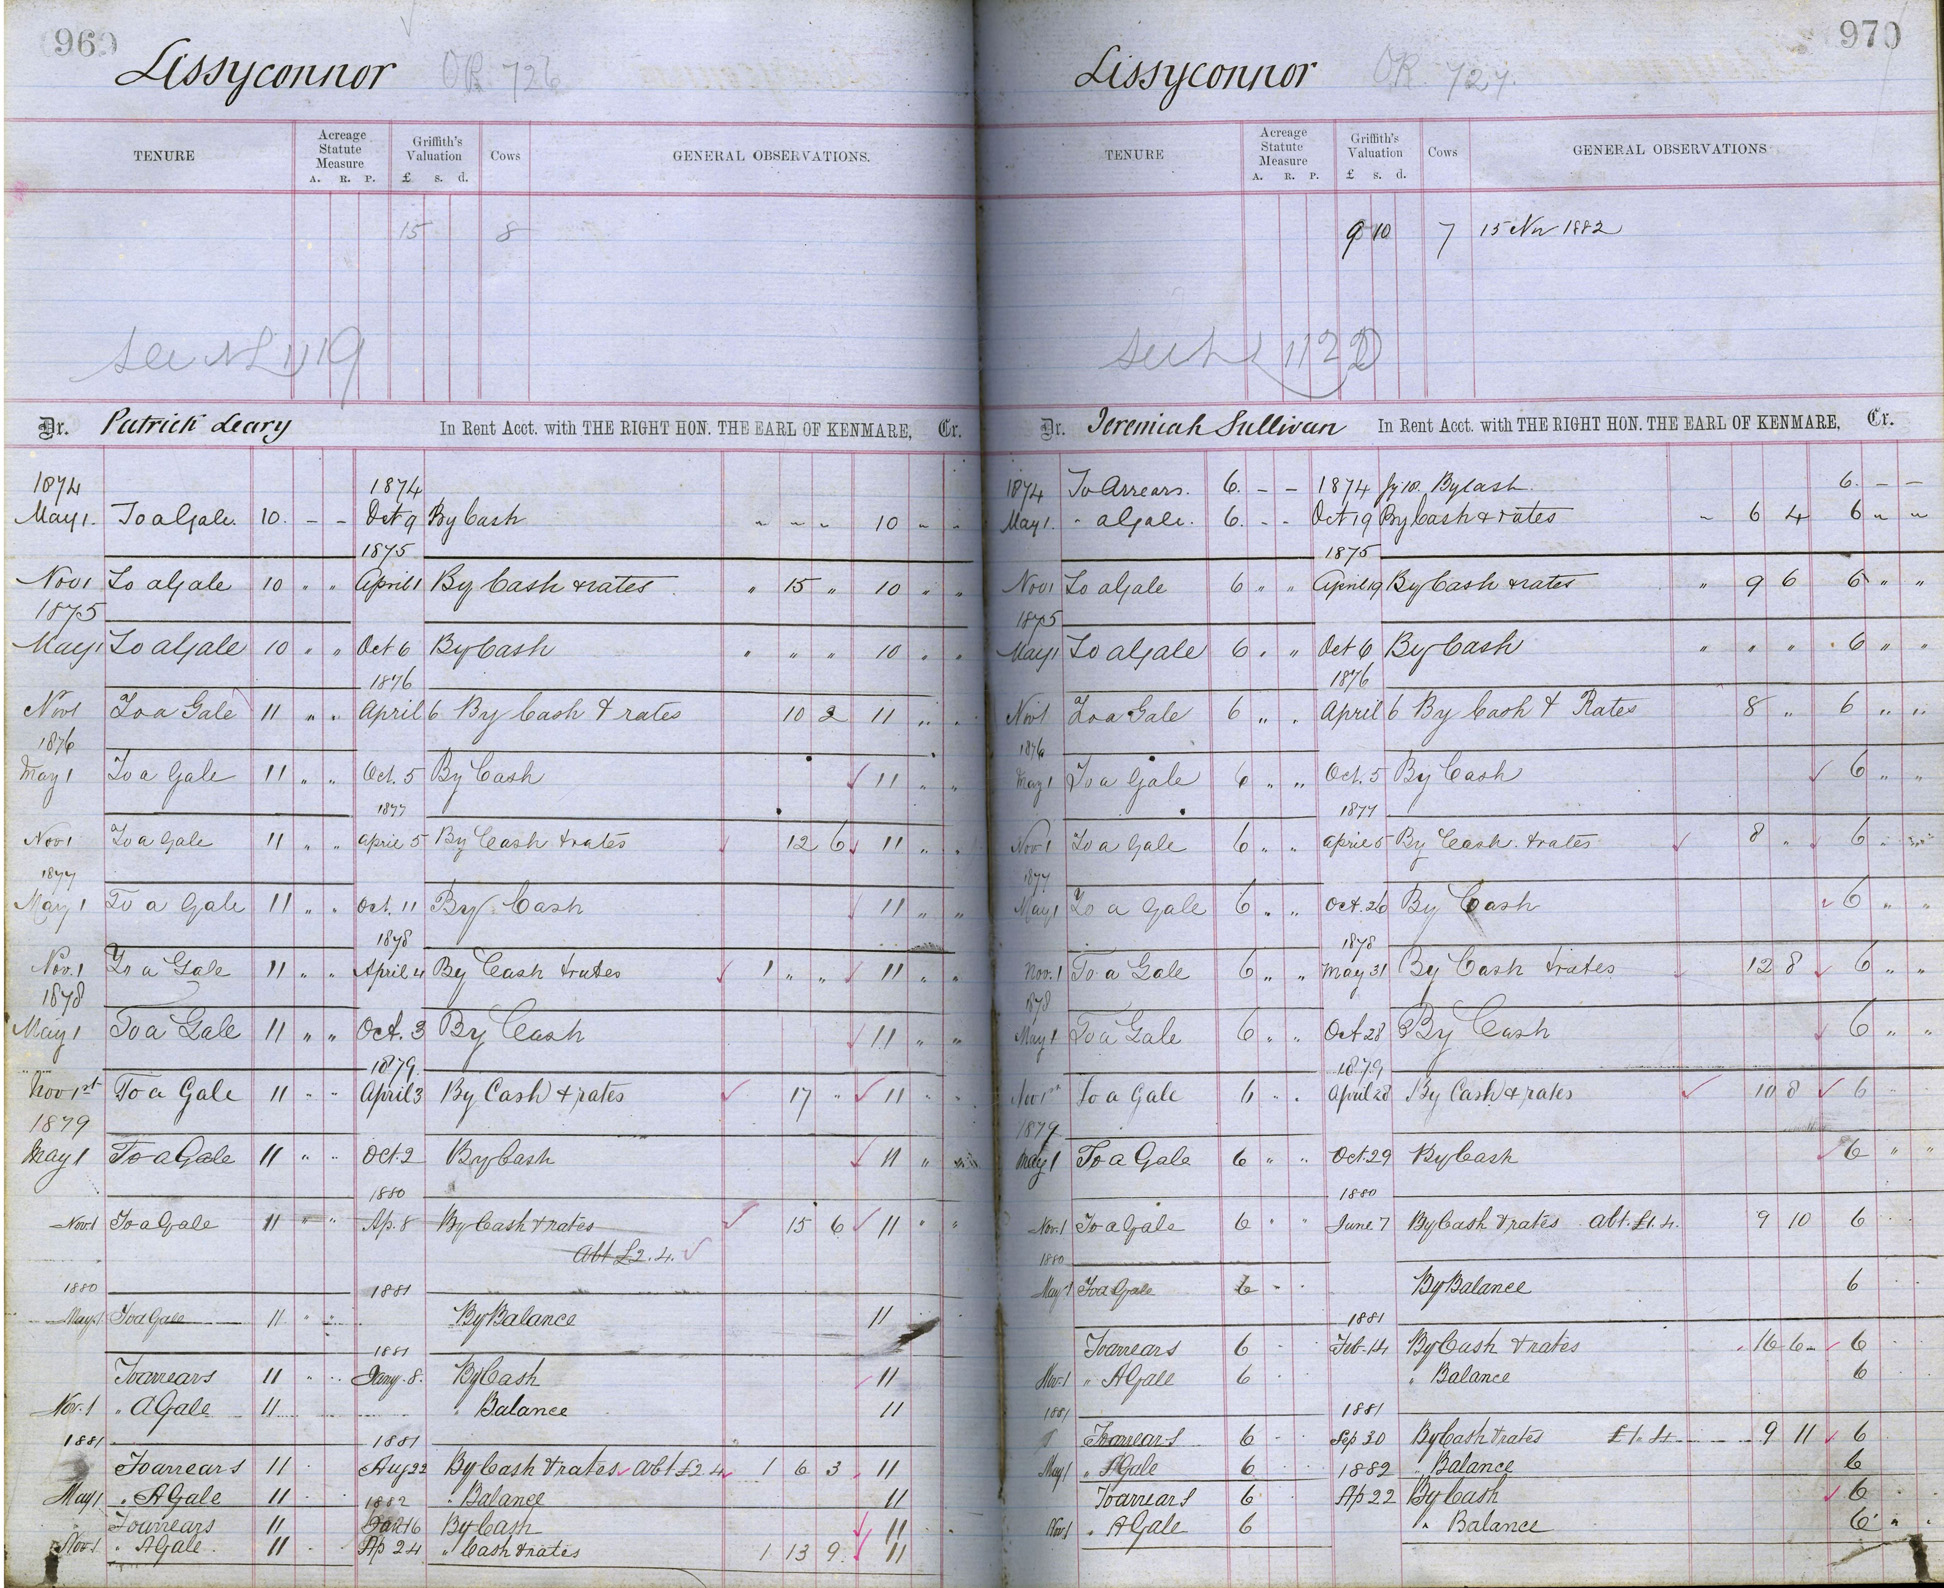 969
Lissyconnor OR 726
TENURE Acreage Statute Measure A. R. P. Griffith's Valuation £ s. d. Cows GENERAL OBSERVATIONS.
15 8
see NL 1119
Dr. Patrick Leary In Rent Acct. with THE RIGHT HON. THE EARL OF KENMARE, Cr.
1874 1874
May 1. To a Gale. 10. - - Oct 9 By Cash " " " 10 " "
1875
Nov 1 To a Gale 10 " " April 1 By Cash & rates " 15 " 10 " "
1875
May 1 To a Gale 10 " " Oct 6 By Cash " " " 10 " "
1876
Nov 1 To a Gale 11 " " April 6 By Cash & rates 10 2 11 " "
1876
May 1 To a Gale 11 " " Oct. 5 By Cash 11 " "
1877
Nov 1 To a Gale 11 " " April 5 By Cash & rates 12 6 11 " "
1877
May 1 To a Gale 11 " " Oct. 11 By Cash 11 " "
1878
Nov. 1 To a Gale 11 " " April 4 By Cash & rates 1 " " 11 " "
1878
May 1 To a Gale 11 " " Oct. 3 By Cash 11 " "
1879
Nov 1st To a Gale 11 " " April 3 By Cash & rates 17 " 11 " "
1879
May 1 To a Gale 11 " " Oct. 2 By Cash 11 "
1880
Nov. 1 To a Gale 11 " " Ap. 8 By Cash & rates 15 6 11 " "
Abt £2.4.
1880 1881
May 1 To a Gale 11 " " By Balance 11
1881
To arrears 11 " " Jany. 8. By Cash 11
Nov. 1 " A Gale 11 " Balance 11
1881 1881
To arrears 11 Aug 22 By Cash & rates Abt £2 4 1 6 3 11
May 1 " A Gale 11 1882 " Balance 11
To arrears 11 Jan 16 By Cash 11
Nov. 1 " A Gale 11 Ap 24 " Cash & rates 1 13 9 11
970
Lissyconnor OR 727.
TENURE Acreage Statute Measure A. R. P. Griffith's Valuation £ s. d. Cows GENERAL OBSERVATIONS
9 10 7 15 Nov 1882
1122
Dr. Jeremiah Sullivan In Rent Acct. with THE RIGHT HON. THE EARL OF KENMARE, Cr.
1874 To Arrears. 6. - - 1874 Jy 10. By Cash. 6. - -
May 1. " a Gale. 6. - - Oct 19 By Cash & rates " 6 4 6 " "
1875
Nov 1 To a Gale 6 " " April 19 By Cash & rates " 9 6 6 " "
1875
May 1 To a Gale 6 " " Oct 6 By Cash " " " 6 " "
1876
Nov 1 To a Gale 6 " " April 6 By Cash & Rates 8 " 6 " "
1876
May 1 To a Gale 6 " " Oct. 5 By Cash 6 " "
1877
Nov. 1 To a Gale 6 " " April 5 By Cash. & rates 8 " 6 "
1877
May 1 To a Gale 6 " " Oct. 26 By Cash 6 " "
1878
Nov. 1 To a Gale 6 " " May 31 By Cash & rates 12 8 6 " "
1878
May 1 To a Gale 6 " " Oct 28 By Cash 6 " "
1879
Nov 1st To a Gale 6 " " April 28 By Cash & rates 10 8 6
1879
May 1 To a Gale 6 " " Oct. 29 By Cash 6 " "
1880
Nov. 1 To a Gale 6 " " June 7 By Cash & rates abt. £1.4. 9 10 6
1880
May 1 To a Gale 6 By Balance 6
1881
To arrears 6 Feb. 14 By Cash & rates 16 6 6
Nov. 1 " A Gale 6 " Balance 6
1881 1881
To arrears 6 Sep 30 By Cash & rates £1.4 9 11 6
May 1 " A Gale 6 1882 " Balance 6
To arrears 6 Ap 22 By Cash 6
Nov 1 " A Gale 6 " Balance 6 " "